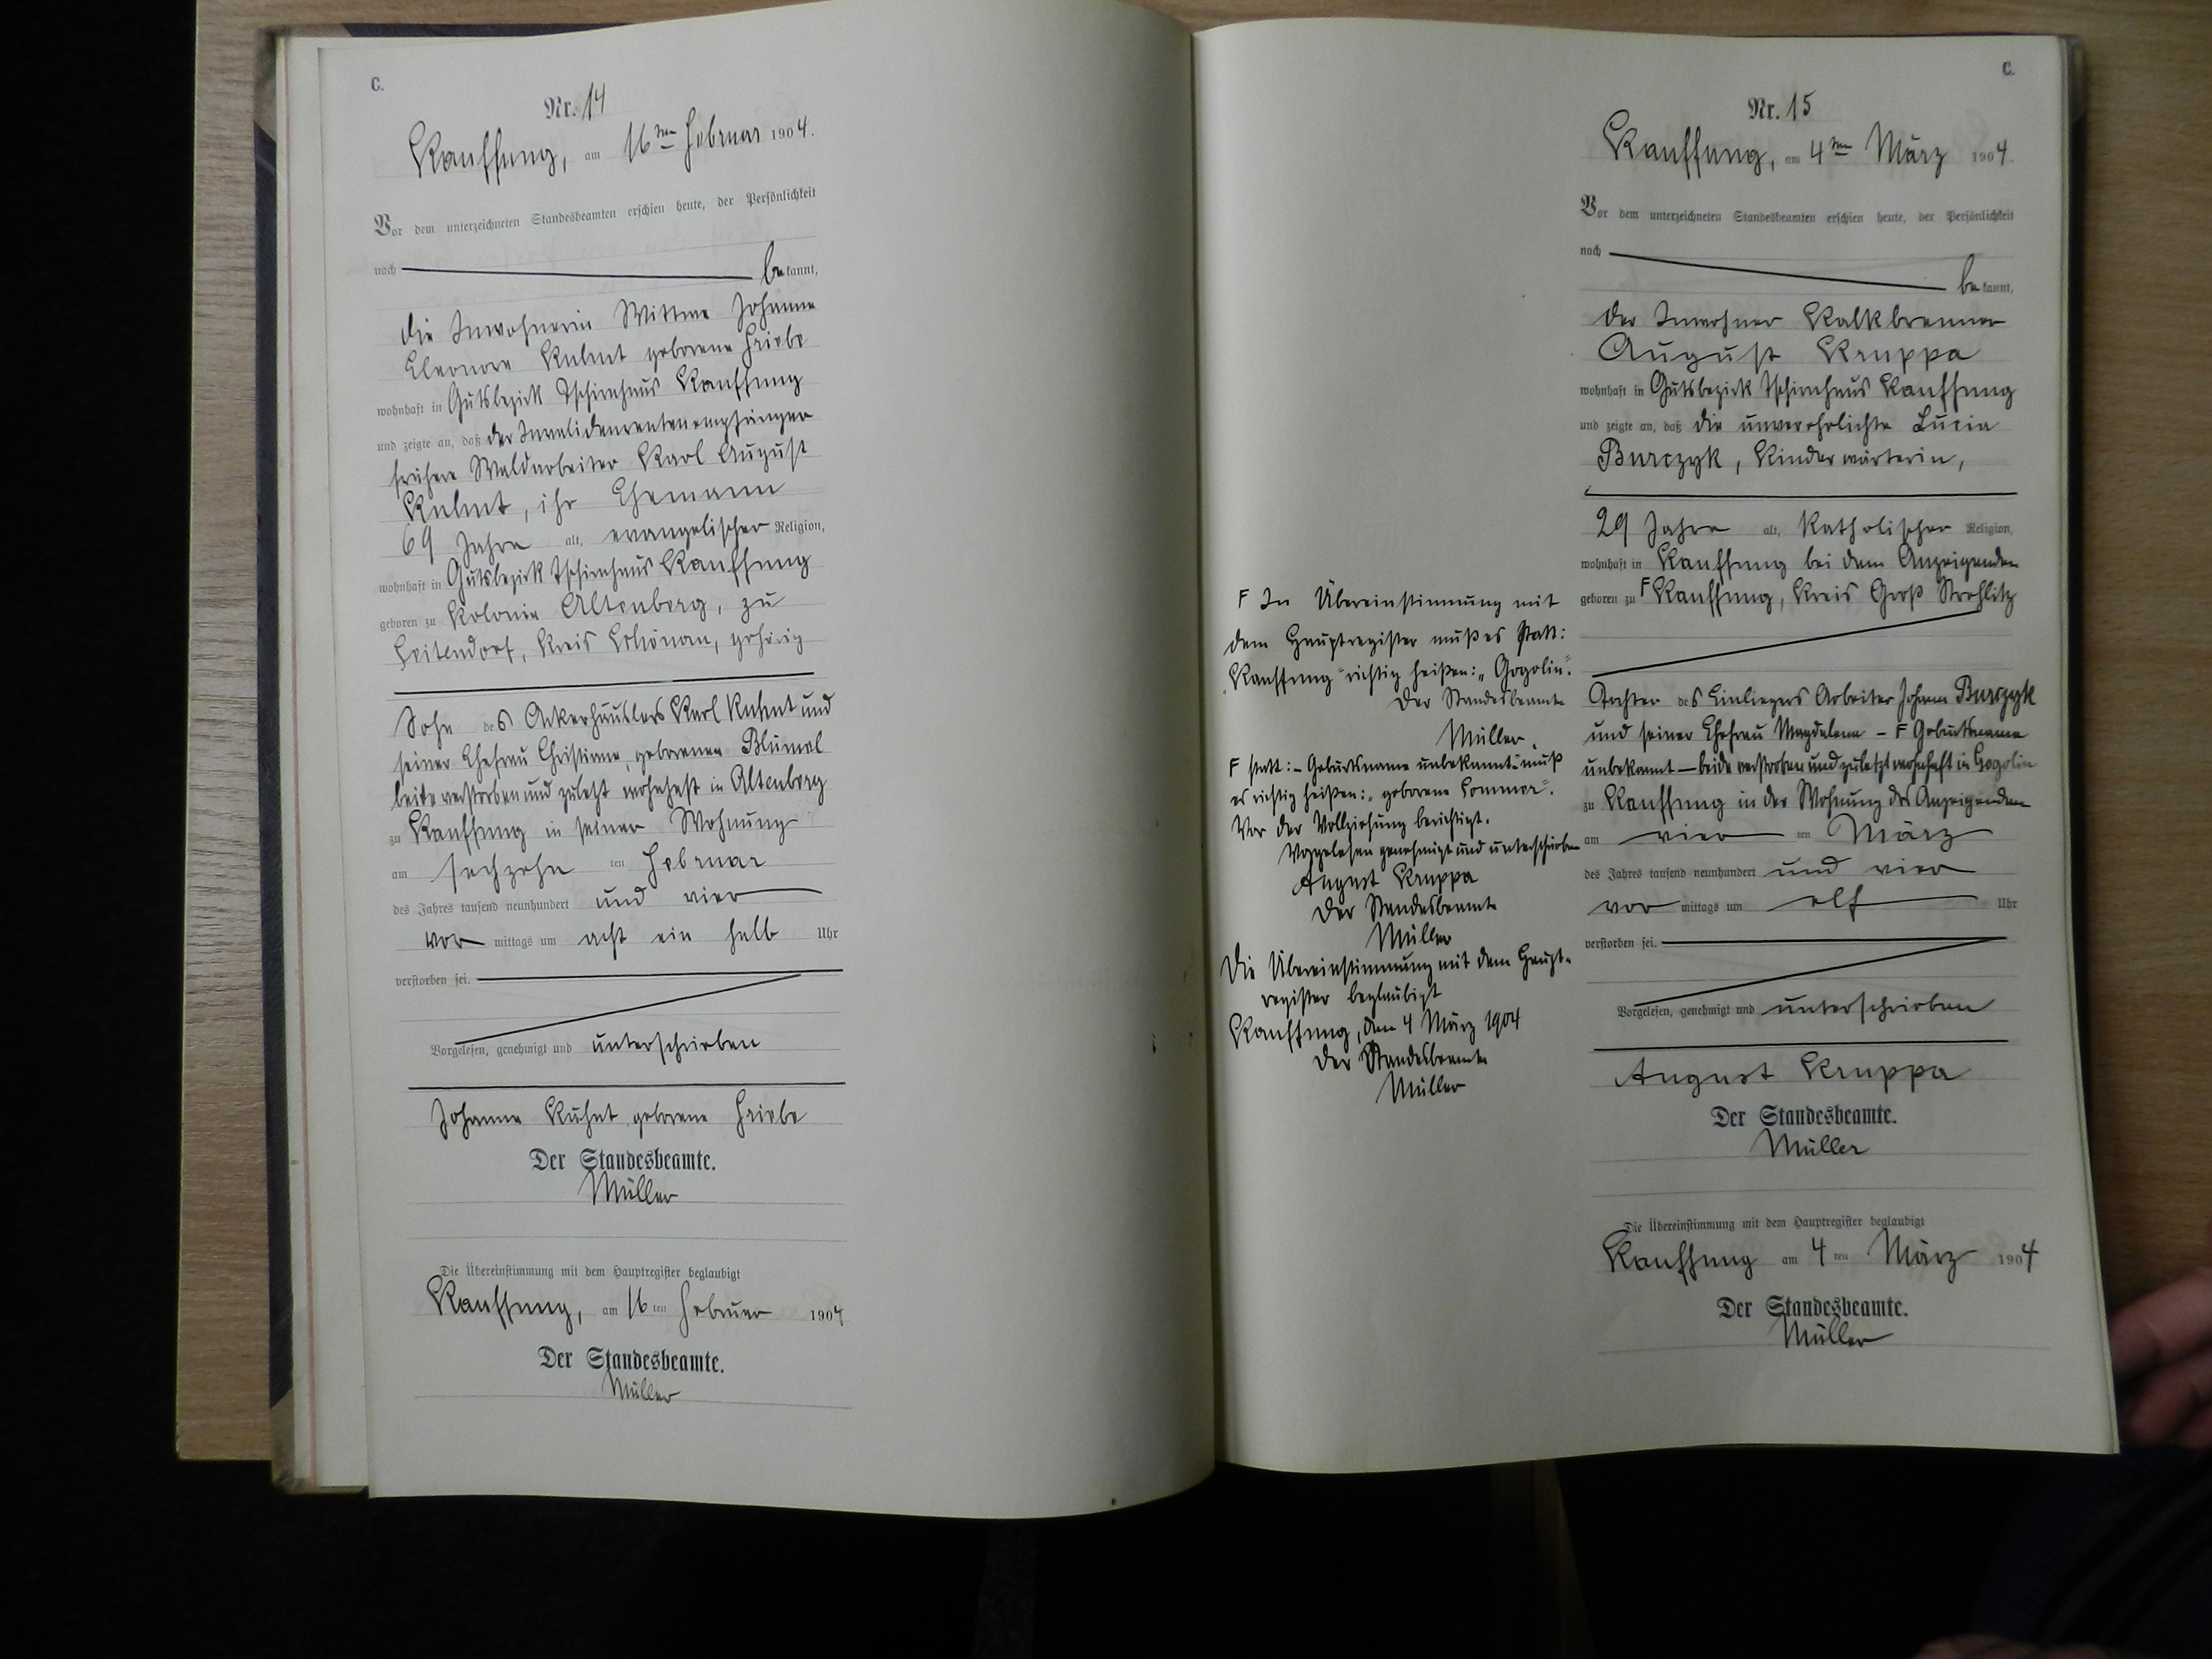 C.
Nr. 14
Kauffung, am 16ten Februar 1904.
Vor dem unterzeichneten Standesbeamten erschien heute, der Persönlichkeit
nach be kannt,
die Inwohnerin Wittwe Johanne
Eleonore Kuhnt geborene Friebe
wohnhaft in Gutsbezirk Tschirnhaus Kauffung
und zeigte an, daß der Invalidenrentenempfänger
frühere Waldarbeiter Karl August
Kuhnt, ihr Ehemann
69 Jahre alt, evangelischer Religion,
wohnhaft in Gutsbezirk Tschirnhaus Kauffung
geboren zu Kolonie Altenberg, zu
Seitendorf, Kreis Schönau, gehörig
Sohn des Ackerhäuslers Karl Kuhnt und
seiner Ehefrau Christiane, geborenen Blümel
beide verstorben und zuletzt wohnhaft in Altenberg
zu Kauffung in seiner Wohnung
am sechzehn ten Februar
des Jahres tausend neunhundert und vier
vor mittags um acht ein halb Uhr
verstorben sei.
Vorgelesen, genehmigt und unterschrieben
Johanne Kuhnt geborene Friebe
Der Standesbeamte.
Müller
Die Übereinstimmung mit dem Hauptregister beglaubigt
Kauffung, am 16 ten Februar 1904
Der Standesbeamte.
Müller
C.
Nr. 15
Kauffung, am 4ten März 1904.
Vor dem unterzeichneten Standesbeamten erschien heute, der Persönlichkeit
nach be kannt,
der Inwohner Kalkbrenner
August Kruppa
wohnhaft in Gutsbezirk Tschirnhaus Kauffung
und zeigte an, daß die unverehelichte Lucia
Burczyk, Kinderwärterin,
29 Jahre alt, katholischer Religion,
wohnhaft in Kauffung bei dem Anzeigenden
geboren zu F Kauffung, Kreis Groß Strehlitz
Tochter des Einliegers Arbeiter Johann Burczyk
und seiner Ehefrau Magdalena – F Geburtsname
unbekannt – beide verstorben und zuletzt wohnhaft in Gogolin
zu Kauffung in der Wohnung des Anzeigenden
am vier ten März
des Jahres tausend neunhundert und vier
vor mittags um elf Uhr
verstorben sei.
Vorgelesen, genehmigt und unterschrieben
August Kruppa
Der Standesbeamte.
Müller
Die Übereinstimmung mit dem Hauptregister beglaubigt
Kauffung am 4 ten März 1904
Der Standesbeamte.
Müller
F In Übereinstimmung mit
dem Hauptregister muß es statt:
„Kauffung“ richtig heißen: „Gogolin“.
Der Standesbeamte
Müller.
F statt: – Geburtsname unbekannt – muß
es richtig heißen: „geborene Sommer“.
Vor der Vollziehung berichtigt.
Vorgelesen genehmigt und unterschrieben
August Kruppa
Der Standesbeamte
Müller
Die Übereinstimmung mit dem Haupt-
register beglaubigt
Kauffung, den 4 März 1904
Der Standesbeamte
Müller